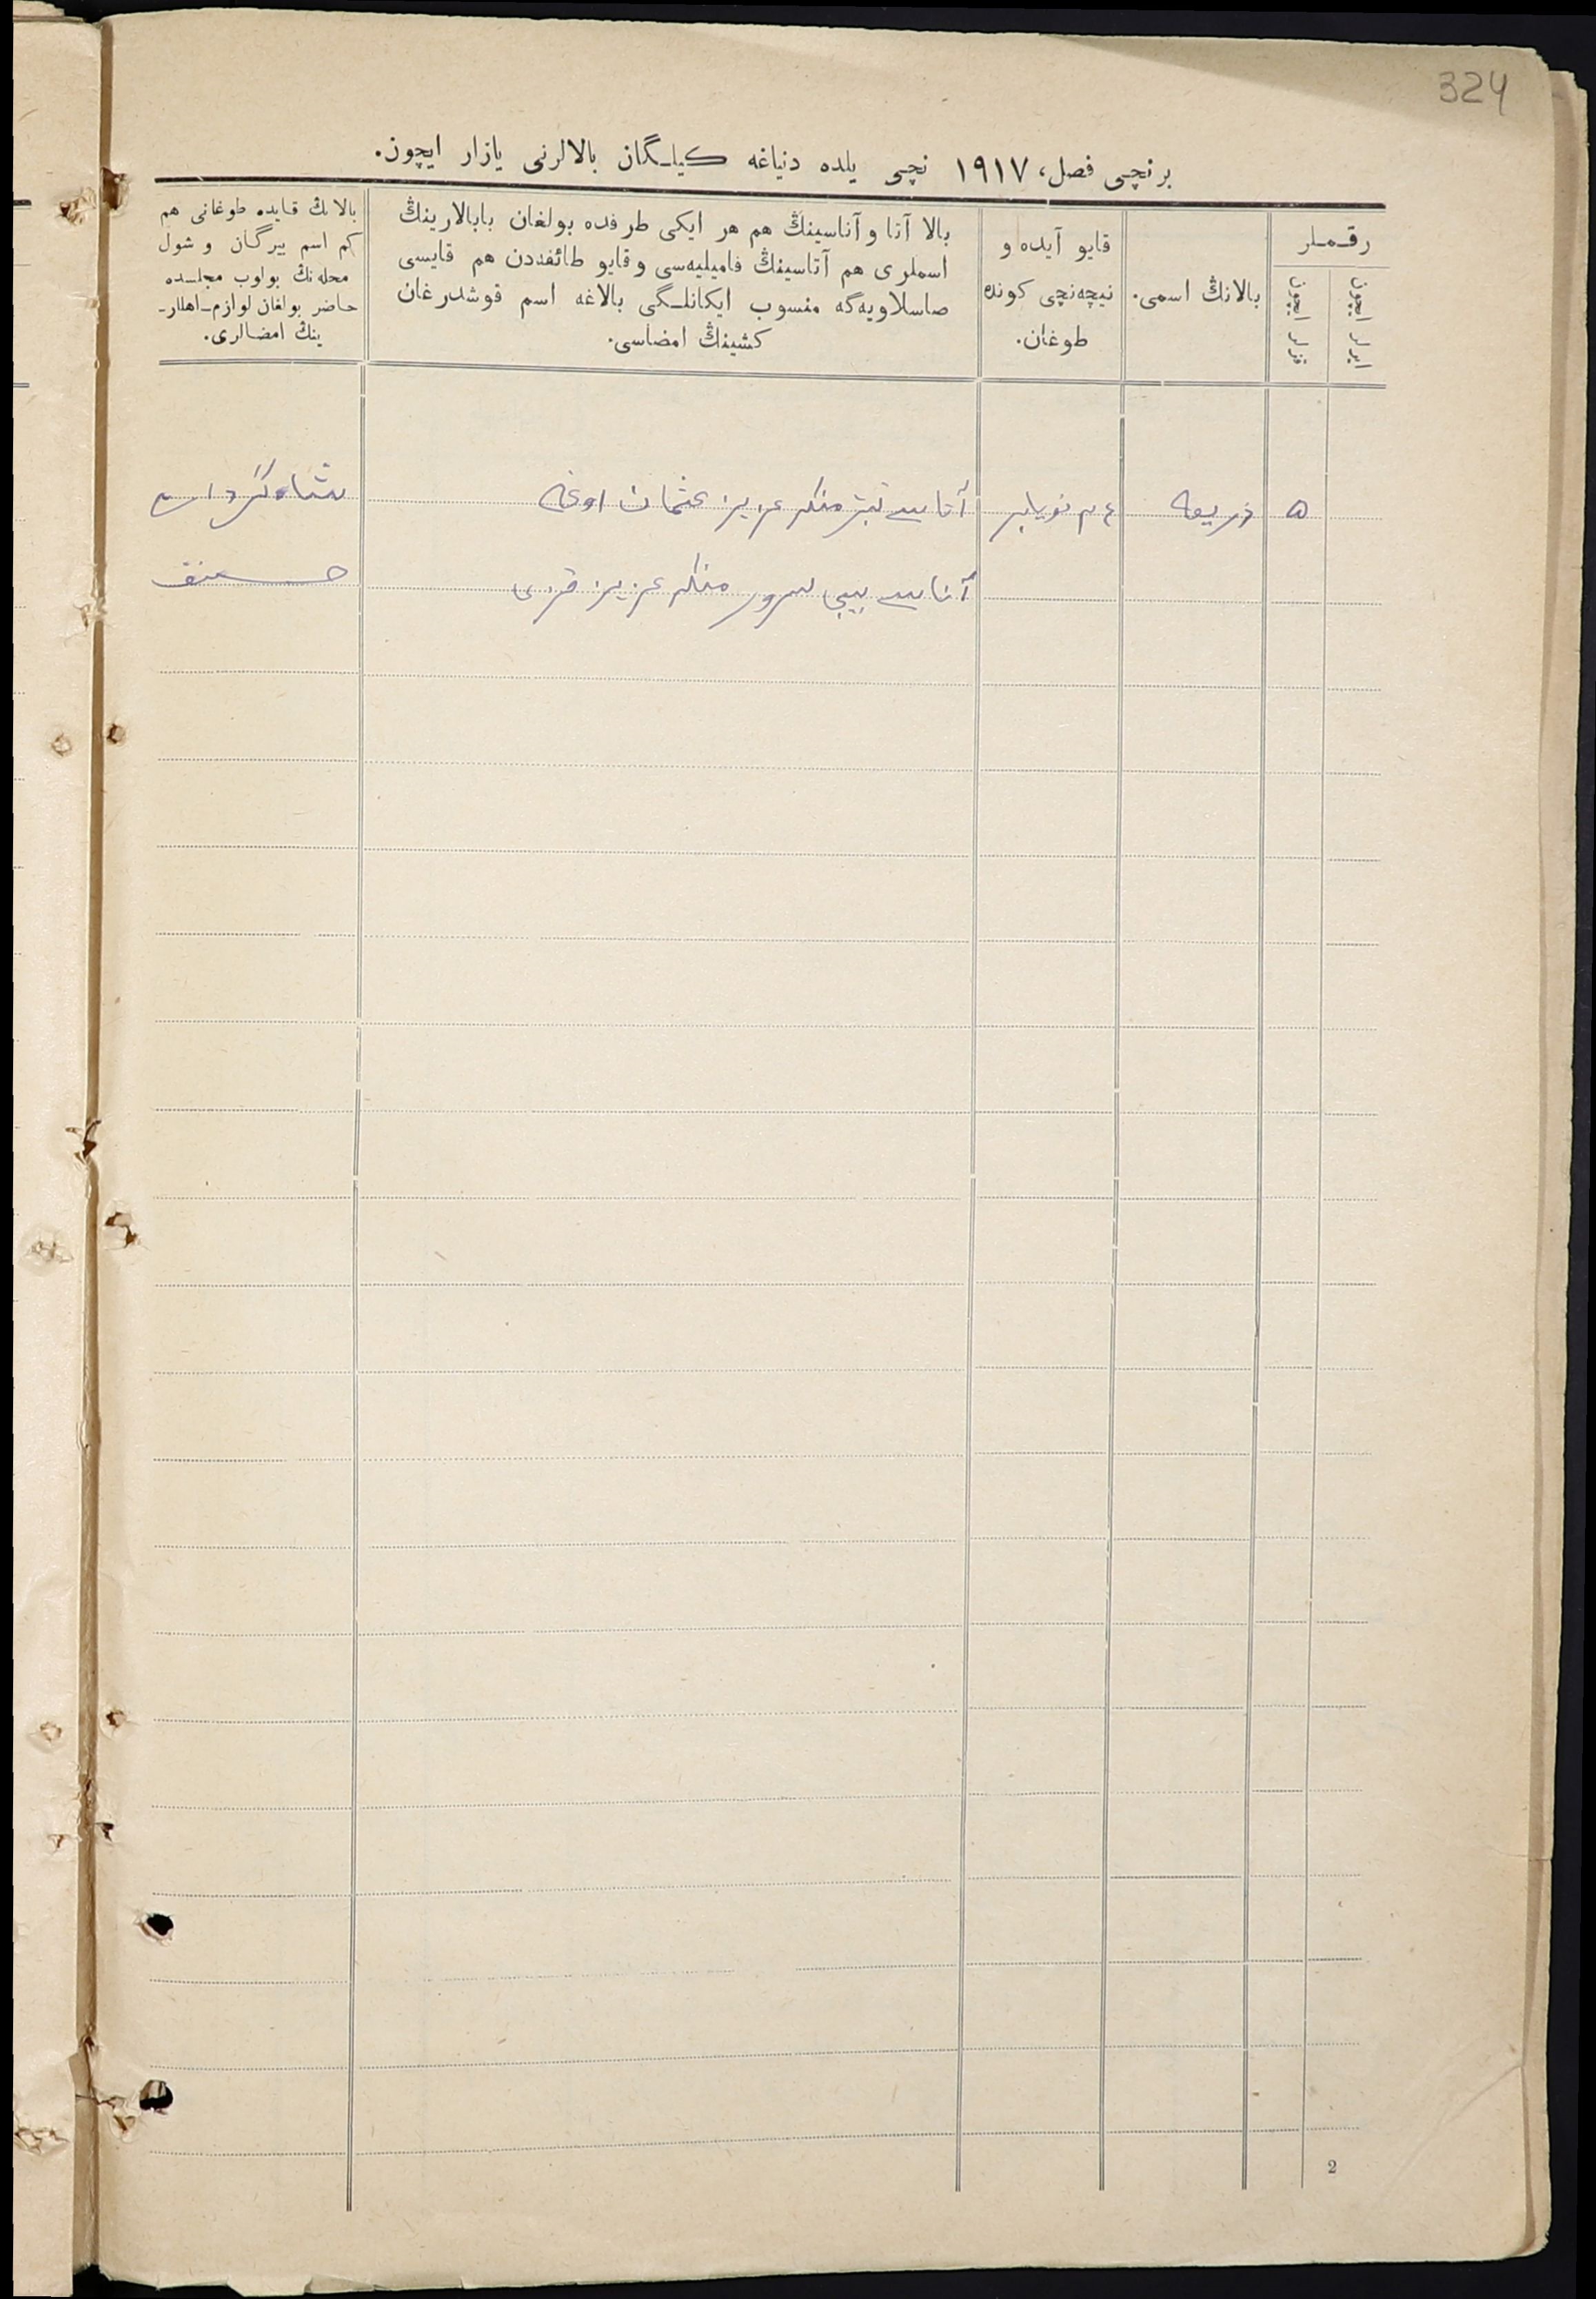 324
برنچی فصل، ١٩١٧ نچی یلده دنیاغه کیلـگان بالالرنی یازار ایچون.
رقـملر
ایرلر ایچون
قزلر ایچون
بالانڭ اسمی.
قایو آیده و
نیچه‌نچی کونده
طوغان.
بالا آتا و آناسینڭ هم هر ایکی طرفده بولغان بابالارینڭ
اسملری هم آتاسینڭ فامیلیه‌سی و قایو طائفه‌دن هم قایسی
صاسلاویه‌گه منسوب ایکانلـگی بالاغه اسم قوشدرغان
کشینڭ امضاسی.
بالانڭ قایده طوغانی هم
کم اسم بیرگان و شول
محله‌نڭ بولوب مجلـسده
حاضر بولغان لوازم ـ اهللر ـ
ینڭ امضالری.
٥
نویابر
آتاسی عزیز عثمان اوغلی
آناسی بیبی سرور عزیز قزی